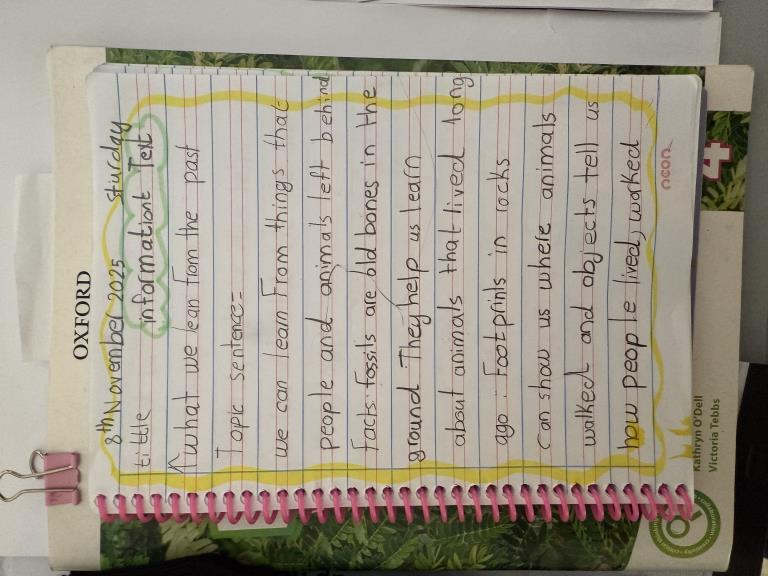 8th November 2025 Sturday
tittle informationt Text
what we lean from the past
Topic sentence=
we can learn from things that
people and animals left behind
Facts: fossils are old bones in the
ground They help us learn
about animals that lived long
ago. Footprints in rocks
can show us where animals
walked and objects tell us
how people lived, worked
neon
OXFORD
4
Kathryn O'Dell
Victoria Tebbs